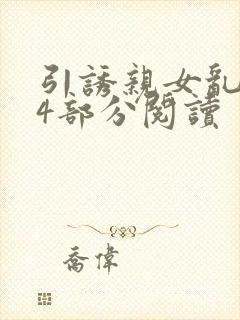 引誘親女亂
4部分閱讀
喬偉